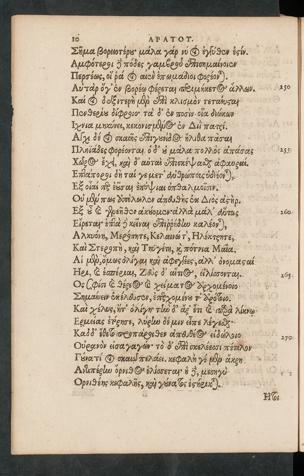 10 ΑΡΑΤΟΥ.
Σῆμα βορειοτέρης· μάλα γάρ νύ οἱ ἐγγύθεν εἰσίν.
Ἀμφότεροι ἢ πόδες γαμβροῦ ἐπισημαίνοιεν
Περσέως, οἵ ῥά οἱ αἰὲν ἐπωμάδιοι φορέονται.
Αὐτὰρ ὅγ' ἐν βορέω φέρεται περιμήκετος ἄλλων. 250
Καί οἱ δεξιτερὴ μὲν ἐπὶ κλισμὸν τετάνυσται
Πενθερίου δίφροιο· τὰ δ' ἐν ποσὶν οἷα διώκων
Ἴχνια μηκύνει, κεκονιμένος ἐν Διῒ πατρί.
Ἄγχι δέ οἱ σκαιῆς ἐπιγουνίδος ἤλιθα πᾶσαι
Πληϊάδες φορέονται. ὁ δ' οὐ μάλα πολλὸς ἁπάσας 255
Χῶρος ἔχει, καὶ δ' αὐταὶ ἐπισκέψασθαι ἀφαυραί.
Ἑπτάποροι δὴ ταί γε μετ' ἀνθρώποις ὑδέονται,
Ἓξ οἶαί περ ἐοῦσαι ἐπόψιαι ὀφθαλμοῖσιν.
Οὐ μέν πως ἀπόλωλεν ἀπευθὴς ἐκ Διὸς ἀστὴρ,
Ἐξ οὗ καὶ γενεῆθεν ἀκούομεν· ἀλλὰ μάλ' αὕτως 260
Εἴρεται· ἑπτὰ δὲ κεῖναι ἐπιρρήδην καλέονται,
Ἀλκυόνη, Μερόπητε, Κελαινώ τ', Ἠλέκτρητε,
Καὶ Στερόπη, καὶ Τηϋγέτη, καὶ πότνια Μαῖα.
Αἱ μὲν, ὅμως ὀλίγαι καὶ ἀφεγγέες, ἀλλ' ὀνομασταὶ
Ἦρι, καὶ ἑσπέριαι, Ζεὺς δ' αἴτιος, εἱλίσσονται. 265
Ὅς σφισι καὶ θέρεος καὶ χείματος ἀρχομένοιο
Σημαίνειν ἐκέλευσεν, ἐπερχομένου τ' ἀρότοιο.
Καὶ χέλυς, ἥτ' ὀλίγη· τὴν δ' ἄρ' ἔτι καὶ παρὰ λίκνῳ
Ἑρμείας ἐτόρησε, λύρην δέ μιν εἶπε λέγεσθαι.
Καδδ' ἔθετο προπάροιθεν ἀπευθέος εἰδώλοιο 270
Οὐρανὸν εἰσαγαγών· τὸ δ' ἐπὶ σκελέεσσι πέτηλον
Γούνατί οἱ σκαιῷ πελάει. κεφαλή γε μὲν ἄκρη
Ἀντιπέρην ὄρνιθος ἑλίσσεται· ἡ δὲ, μεσηγὺ
Ὀρνιθέης κεφαλῆς, καὶ γούνατος ἐστήρικται.
Ἤτοι